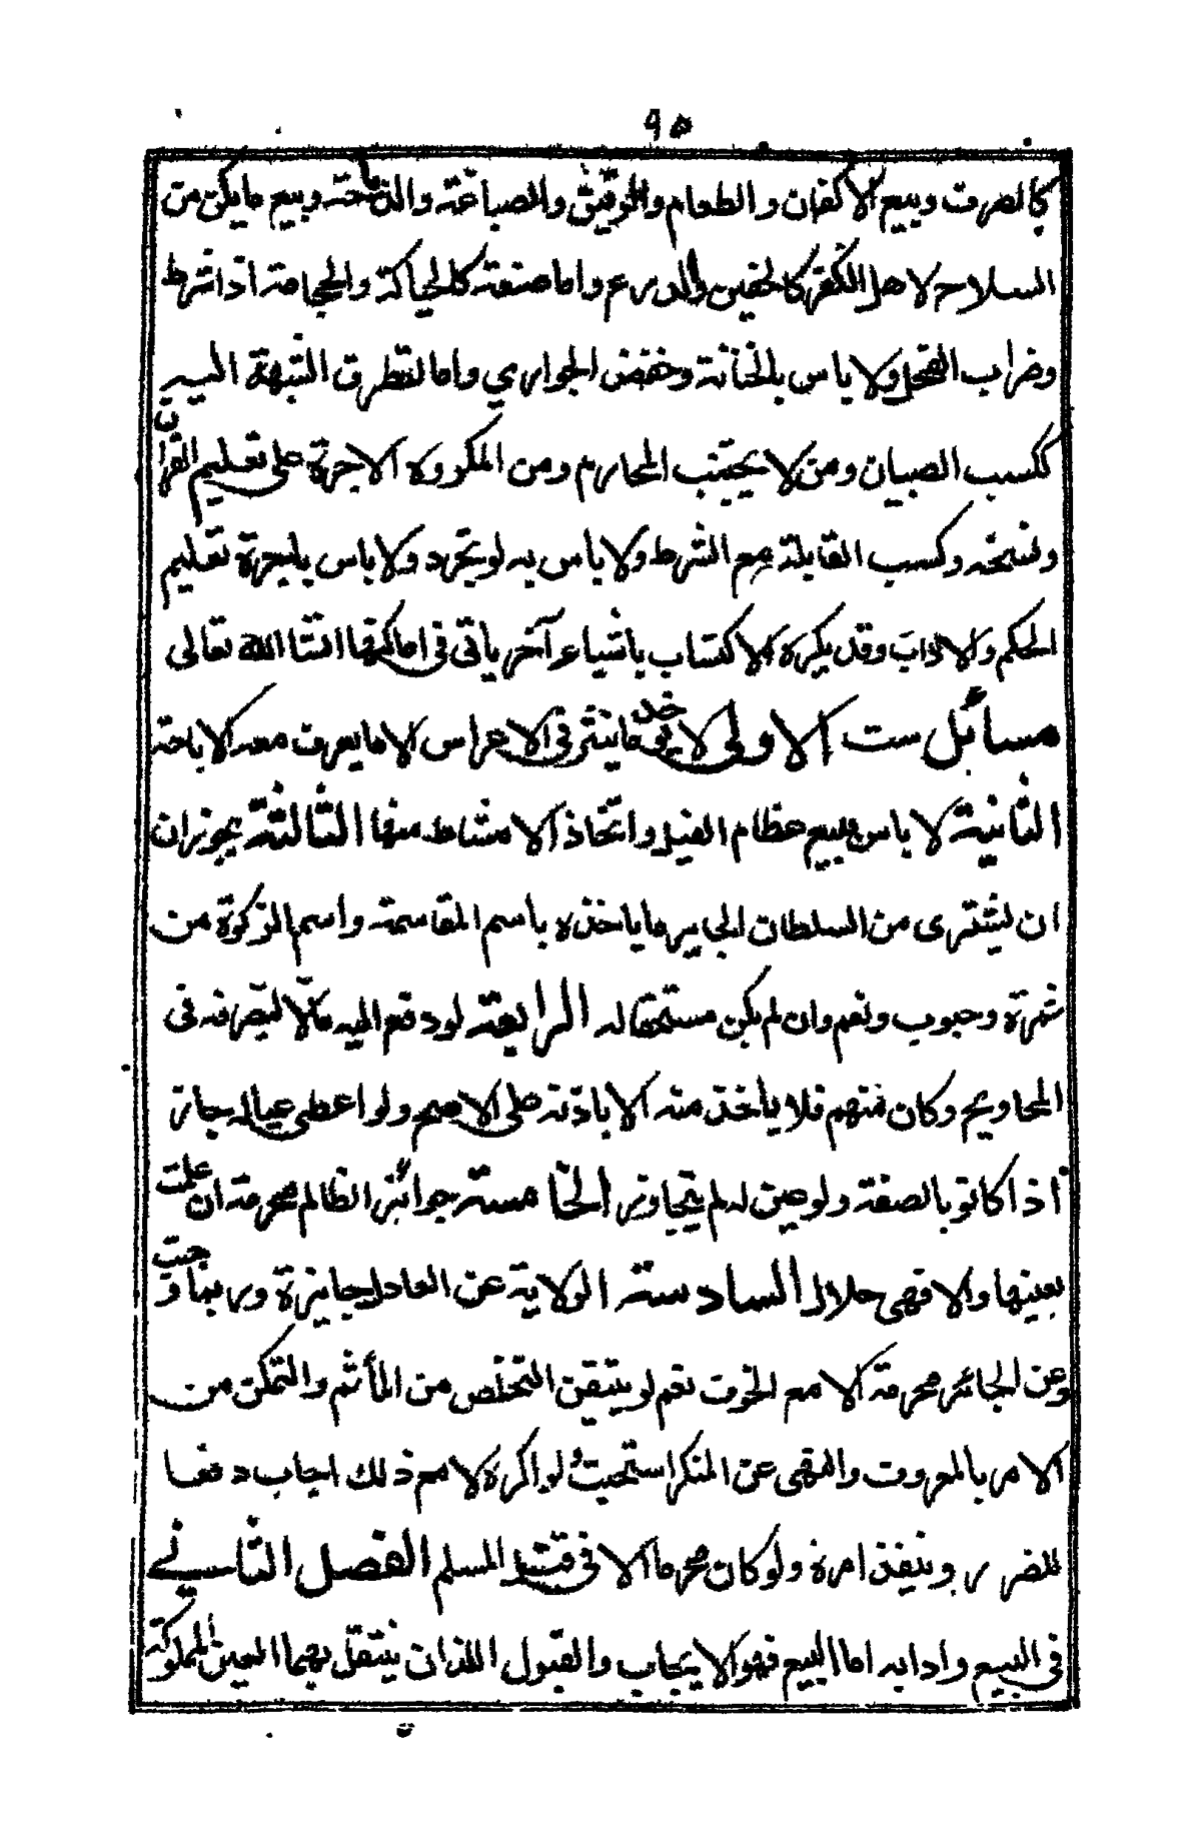 ٩٥
كالصرف وبيع الاكفان والطعام والرقيق والصباغة والذباحة وبيع ما يكن من
السلاح لاهل الكفر كالخفين والدرع واما صنعته كالحياكة والحجامة اذا شرط
وضراب الفحل ولا باس بالختانة وخفض الجواري واما لتطرق الشبهة اليه
ككسب الصبيان ومن لا يجتنب المحارم ومن المكروه الاجرة على تعليم القران
ونسخه وكسب القابلة مع الشرط ولا باس به لو تجرد ولا باس باجرة تعليم
الحكم والاداب وقد يكره الاكتساب باشياء آخر ياتى فى اماكنها انشا الله تعالى
مسائل ست الاولى لا يوخذ ما ينثر فى الاعراس الا ما يعرف معه الاباحة
الثانية لا باس ببيع عظام الفيل واتخاذ الامشاط منها الثالثة يجوز ان
ان يشترى من السلطان الجاير ما ياخذه باسم المقاسمة واسم الزكوة من
ثمرة وحبوب ونعم وان لم يكن مستحقا له الرابعة لو دفع اليه مالا ليصرفه فى
المحاويج وكان منهم فلا ياخذ منه الا باذنه على الاصح ولو اعطى عياله جاز
اذا كانوا بالصفة ولو عين له لم يتجاوز الخامسة جوائز الظالم محرمة ان علمت
بعينها والا فهى حلال السادسة الولاية عن العادل جايزة وربما وجبت
وعن الجائر محرمة الا مع الخوف نعم لو يتيقن التخلص من المأثم والتمكن من
الامر بالمعروف والنهى عن المنكر استحبت لو اكره لا مع ذلك اجاب دفعا
للضرر وينفذ امره ولو كان محرما الا فى قتل المسلم الفصل الثانى
فى البيع وادابه اما البيع فهو الايجاب والقبول اللذان ينتقل بهما العين المملوكة